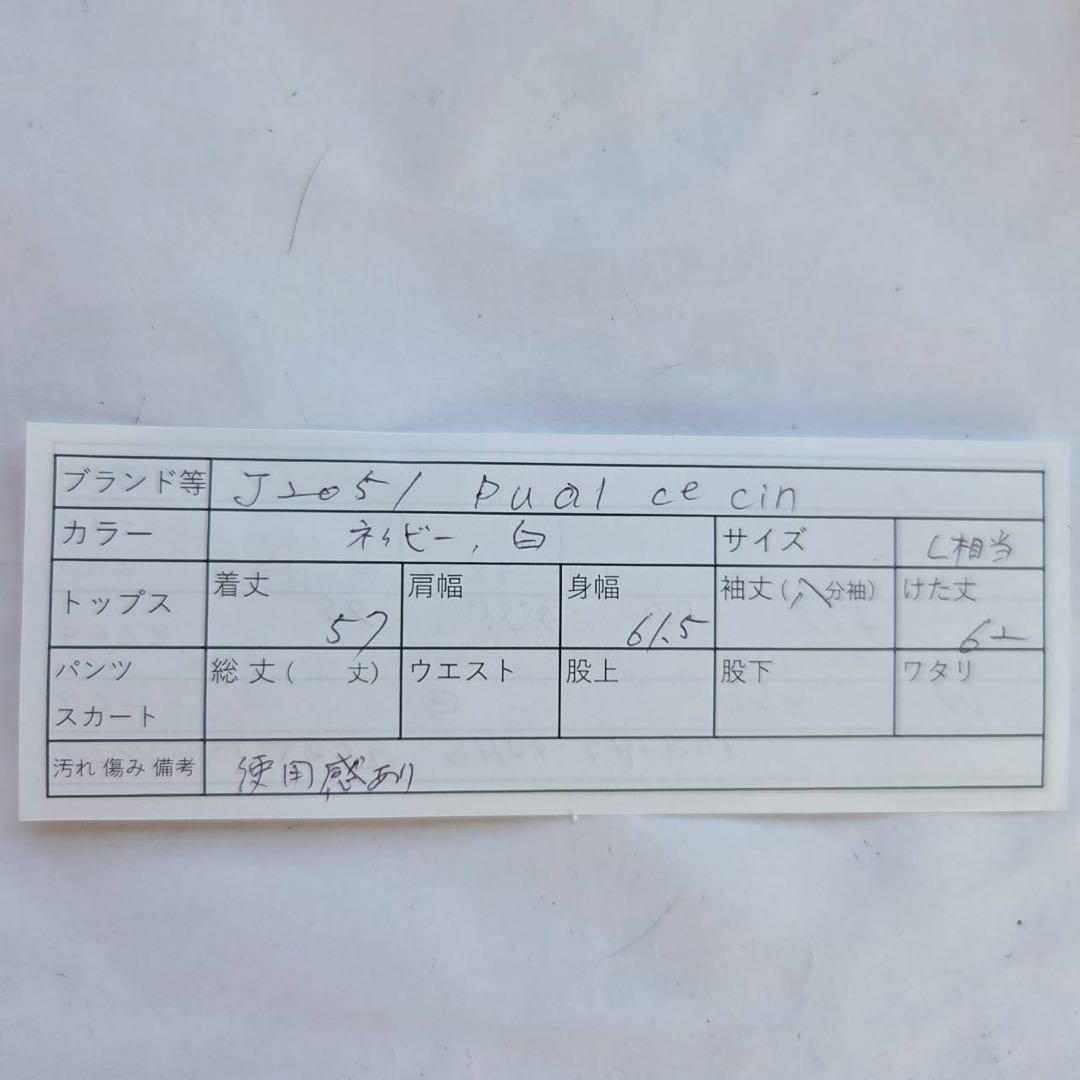 ブランド等 J2051 pual ce cin
カラー ネイビー, 白 サイズ L相当
トップス 着丈 57 肩幅 身幅 61.5 袖丈(八分袖) けた丈 62
パンツ スカート 総丈( 丈) ウエスト 股上 股下 ワタリ
汚れ 傷み 備考 使用感あり